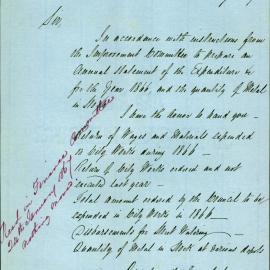 Sir,
In accordance with instructions from
the Improvement Committee to prepare an
Annual Statement of the Expenditure &c
for the Year 1866, and the quantity of Metal
in Stock
I have the honor to hand you —
Return of Wages and Materials expended
on City Works during 1866 —
Return of City Works ordered and not
executed last year —
Total amount ordered by the Council to be
expended in City Works in 1866 —
Disbursements for Street Watering —
Quantity of Metal in Stock at various depots
Read in Finance Committee
24th January 1867
nothing